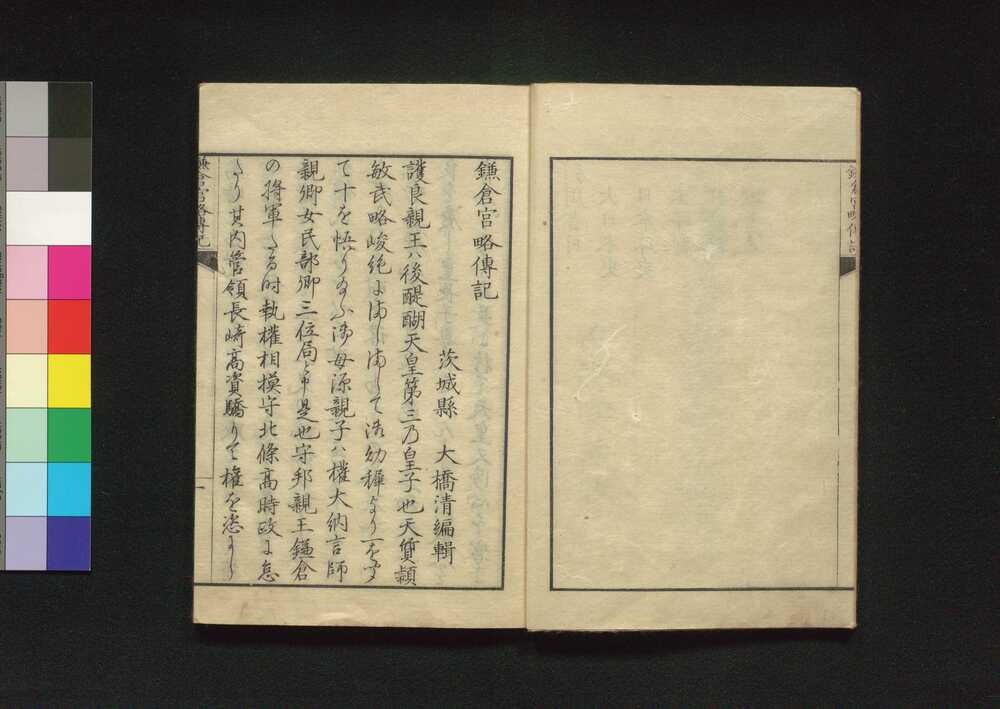 鎌倉宮略傳記
茨城縣 大橋清編輯
護良親王ハ後醍醐天皇第三乃皇子也天質頴
敏武略峻絶にましましまして御幼穉より一を聞
て十を悟り給ふ御母源親子ハ權大納言師
親卿女民部卿三位局と申是也守邦親王鎌倉
の將軍たる時執權相摸守北條高時政に怠
たり其内管領長崎高資驕りて權を恣にし
鎌倉宮略傳記
一
鎌倉宮略傳記